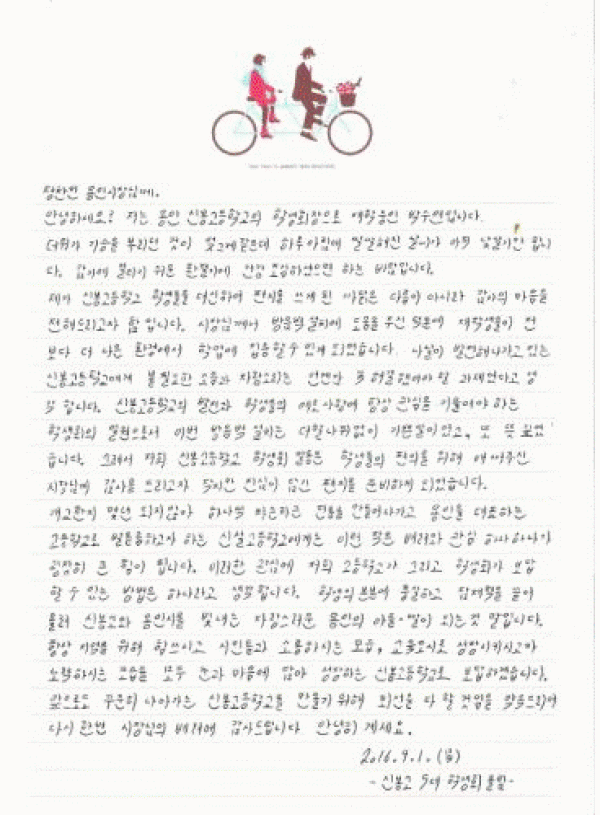 정찬민 용인시장님께.
안녕하세요? 저는 용인 신봉고등학교의 학생회장으로 재학중인 박수연입니다.
더위가 기승을 부리던 것이 엊그제같은데 하루아침에 쌀쌀해진 날씨가 아주 낯설기만 합니
다. 감기에 걸리기 쉬운 환절기에 건강 조심하셨으면 하는 바람입니다.
제가 신봉고등학교 학생들을 대신하여 편지를 쓰게 된 까닭은 다름이 아니라 감사의 마음을
전해드리고자 함입니다. 시장님께서 방음벽 설치에 도움을 주신 덕분에 재학생들이 전
보다 더 나은 환경에서 학업에 집중할 수 있게 되었습니다. 나날이 발전해나가고 있는
신봉고등학교에게 불필요한 소음과 자동차소리는 언젠가 꼭 해결해야할 과제였다고 생
각 합니다. 신봉고등학교의 발전과 학생들의 애로사항에 항상 관심을 기울여야 하는
학생회의 일원으로서 이번 방음벽 설치는 더할나위없이 기쁜일이었고, 또 뜻 깊었
습니다. 그래서 저희 신봉고등학교 학생회 일동은 학생들의 편의를 위해 애써주신
시장님께 감사를 드리고자 작지만 진심이 담긴 편지를 준비하게 되었습니다.
개교한지 몇년 되지않아 하나씩 차근차근 전통을 만들어나가고 용인을 대표하는
고등학교로 발돋움하고자 하는 신설고등학교에게는 이런 작은 배려와 관심 하나하나가
굉장히 큰 힘이 됩니다. 이러한 관심에 저희 고등학교가 그리고 학생회가 보답
할 수 있는 방법은 하나라고 생각합니다. 학생의 본분에 충실하고 잠재력을 끌어
올려 신봉고와 용인시를 빛내는 자랑스러운 용인의 아들·딸이 되는것 말입니다.
항상 지역을 위해 힘쓰시고 시민들과 소통하시는 모습, 교육도시로 성장시키시고자
노력하시는 모습을 모두 눈과 마음에 담아 성장하는 신봉고등학교로 보답하겠습니다.
앞으로도 꾸준히 나아가는 신봉고등학교를 만들기 위해 최선을 다 할 것임을 약속드리며
다시 한번 시장님의 배려에 감사드립니다 안녕히 계세요.
2016.9.1.(목)
-신봉고 5대 학생회 올림-